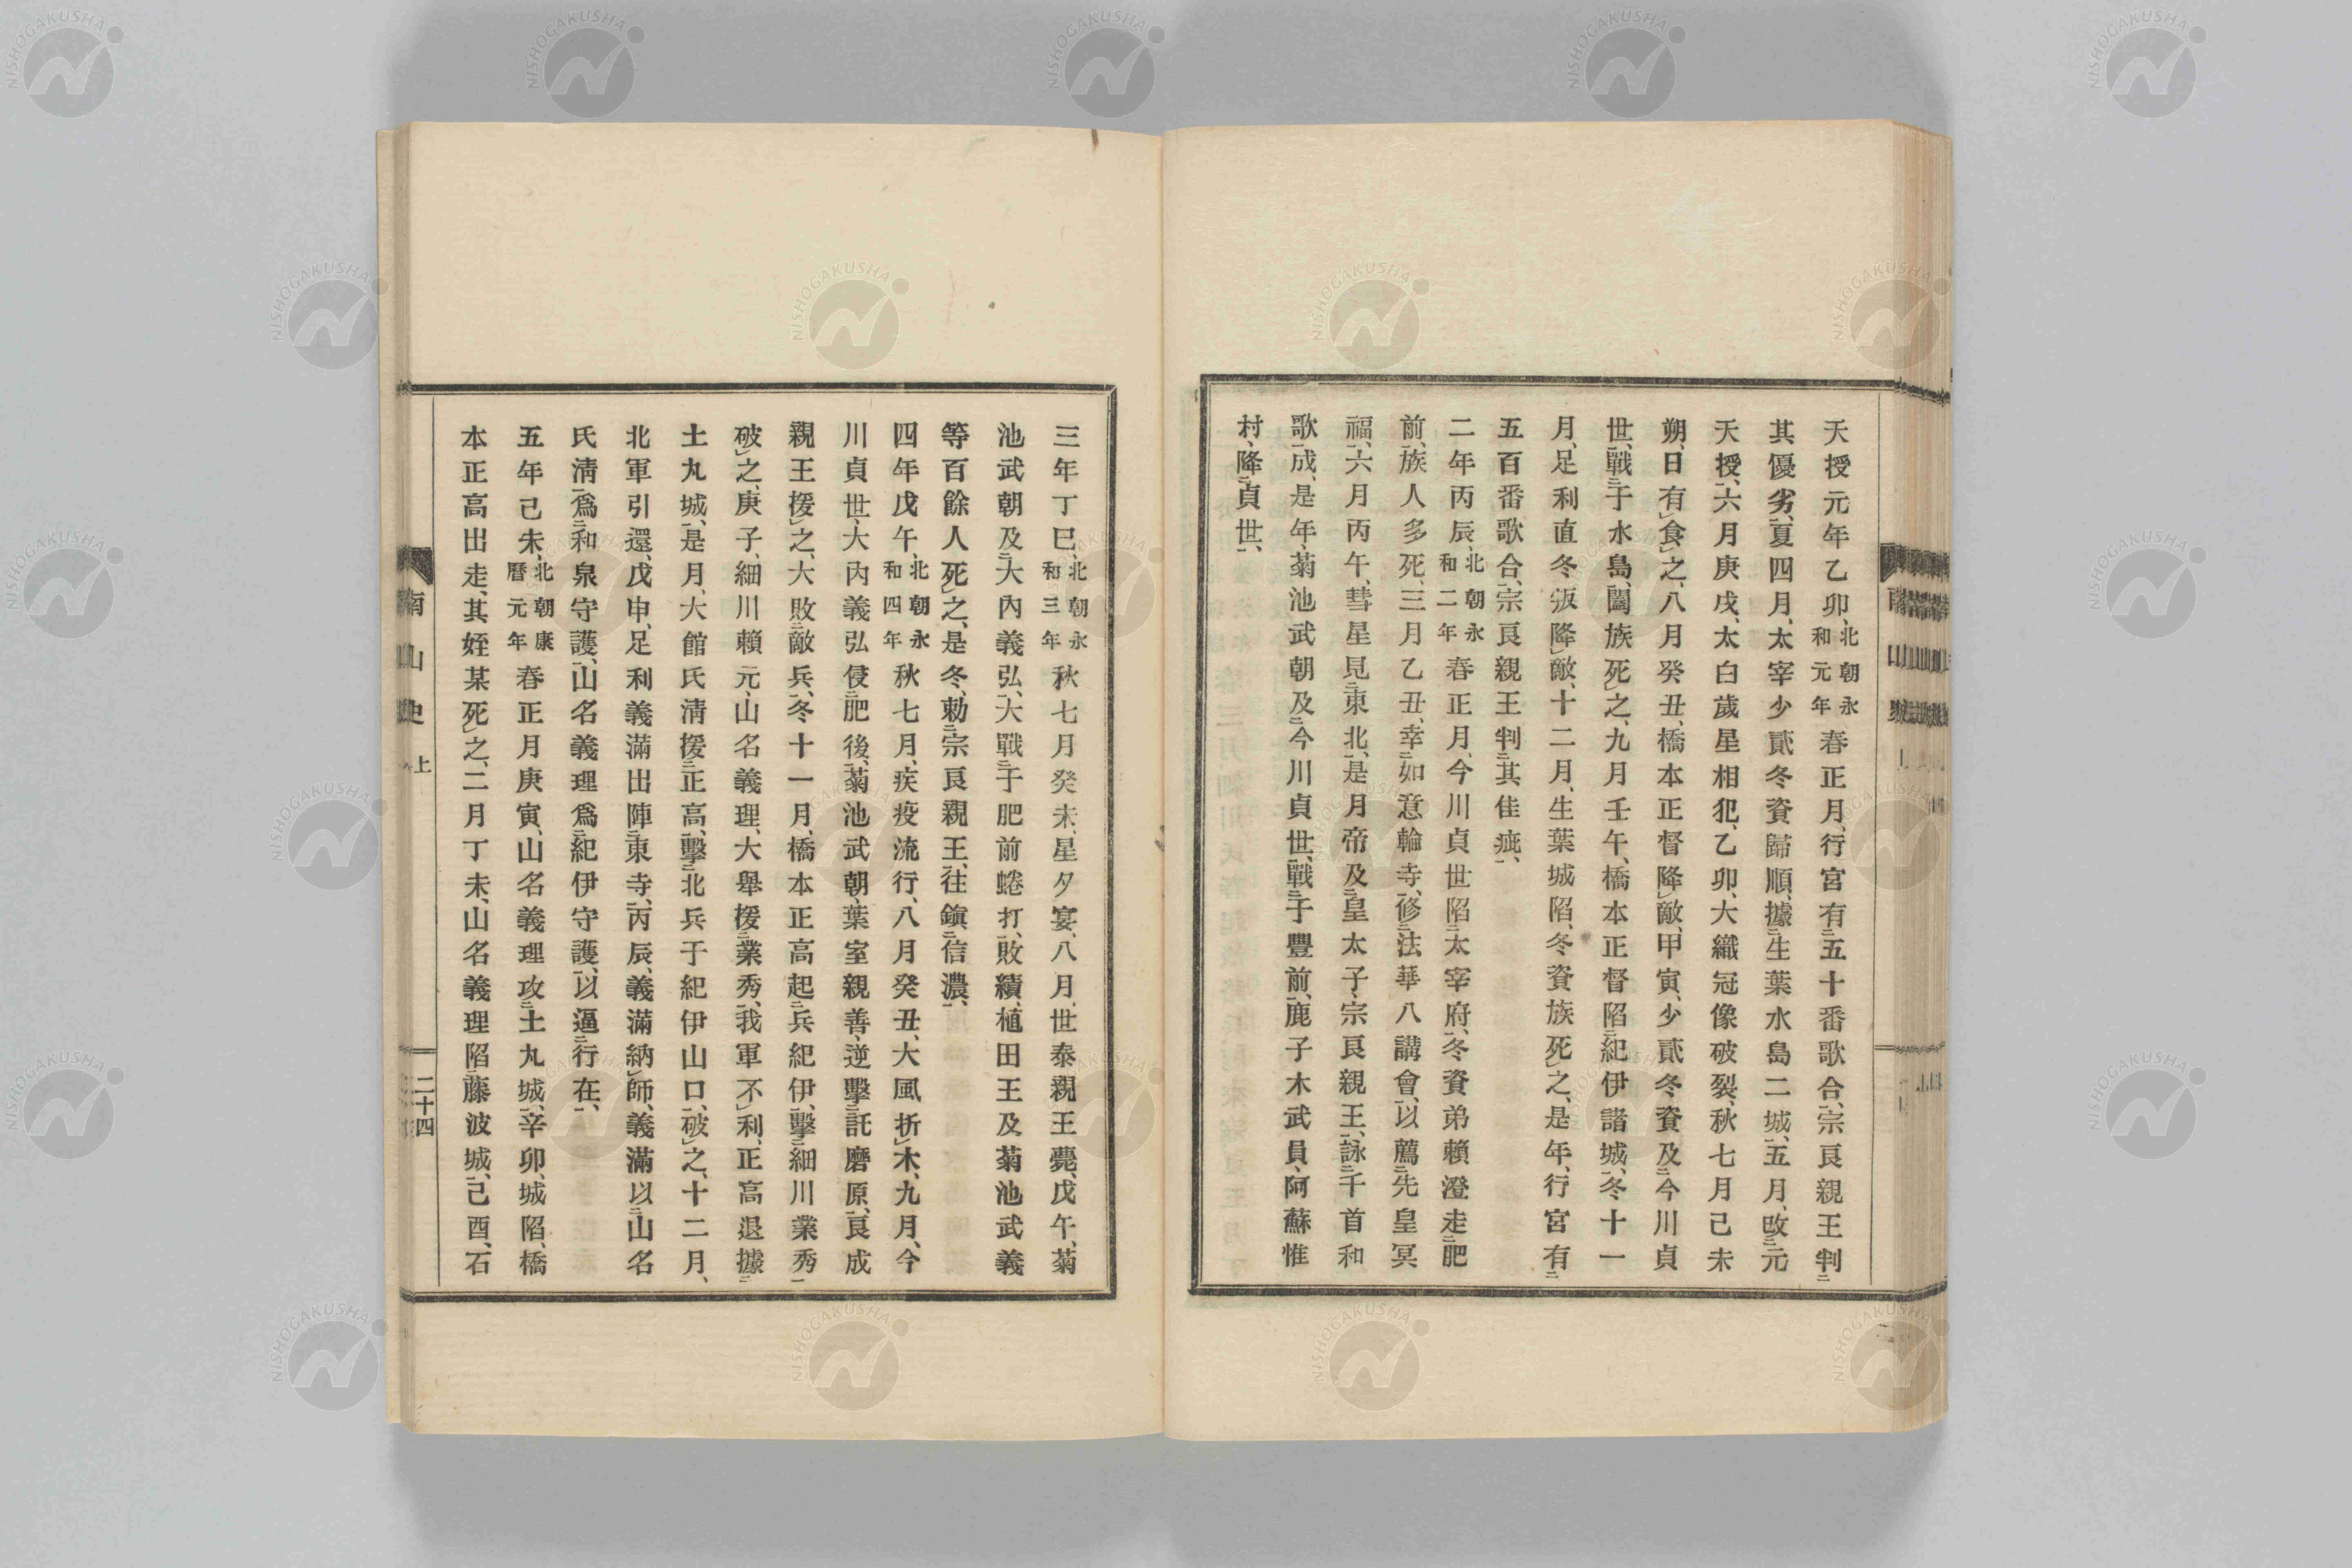 天授元年乙卯、北朝永和元年春正月、行宮有二五十番歌合一、宗良親王判二
其優劣一、夏四月、太宰少貳冬資歸順、據二生葉水島二城一、五月、改二元
天授一、六月庚戌、太白歲星相犯、乙卯、大織冠像破裂、秋七月己未
朔、日有レ食レ之、八月癸丑、橋本正督降レ敵、甲寅、少貳冬資及二今川貞
世一、戰二于水島一、闔族死レ之、九月壬午、橋本正督陷二紀伊諸城一、冬十一
月、足利直冬叛降レ敵、十二月、生葉城陷、冬資族死レ之、是年、行宮有二
五百番歌合一、宗良親王判二其佳疵一、
二年丙辰、北朝永和二年春正月、今川貞世陷二太宰府一、冬資弟賴澄走二肥
前一、族人多死、三月乙丑、幸二如意輪寺一、修二法華八講會一、以薦二先皇冥
福一、六月丙午、彗星見二東北一、是月帝及二皇太子、宗良親王一、詠二千首和
歌一、成、是年、菊池武朝及二今川貞世一、戰二于豐前一、鹿子木武員、阿蘇惟
村、降二貞世一、
三年丁巳、北朝永和三年秋七月癸未、星夕宴、八月、世泰親王薨、戊午、菊
池武朝及二大內義弘一、大戰二于肥前蜷打一、敗績、植田王及菊池武義
等百餘人死レ之、是冬、勅二宗良親王一、往鎭二信濃一、
四年戊午、北朝永和四年秋七月、疾疫流行、八月癸丑、大風折レ木、九月、今
川貞世、大內義弘侵二肥後一、菊池武朝、葉室親善、逆擊二託磨原一、良成
親王援レ之、大敗二敵兵一、冬十一月、橋本正高起二兵紀伊一、擊二細川業秀一
破レ之、庚子、細川賴元、山名義理、大舉援二業秀一、我軍不レ利、正高退據二
土丸城一、是月、大館氏淸援二正高一、擊二北兵于紀伊山口一、破レ之、十二月、
北軍引還、戊申、足利義滿出陣二東寺一、丙辰、義滿納レ師、義滿以二山名
氏淸一爲二和泉守護一、山名義理爲二紀伊守護一、以逼二行在一、
五年己未、北朝康曆元年春正月庚寅、山名義理攻二土丸城一、辛卯、城陷、橋
本正高出走、其姪某死レ之、二月丁未、山名義理陷二藤波城一、己酉、石
南山史 上
二十四